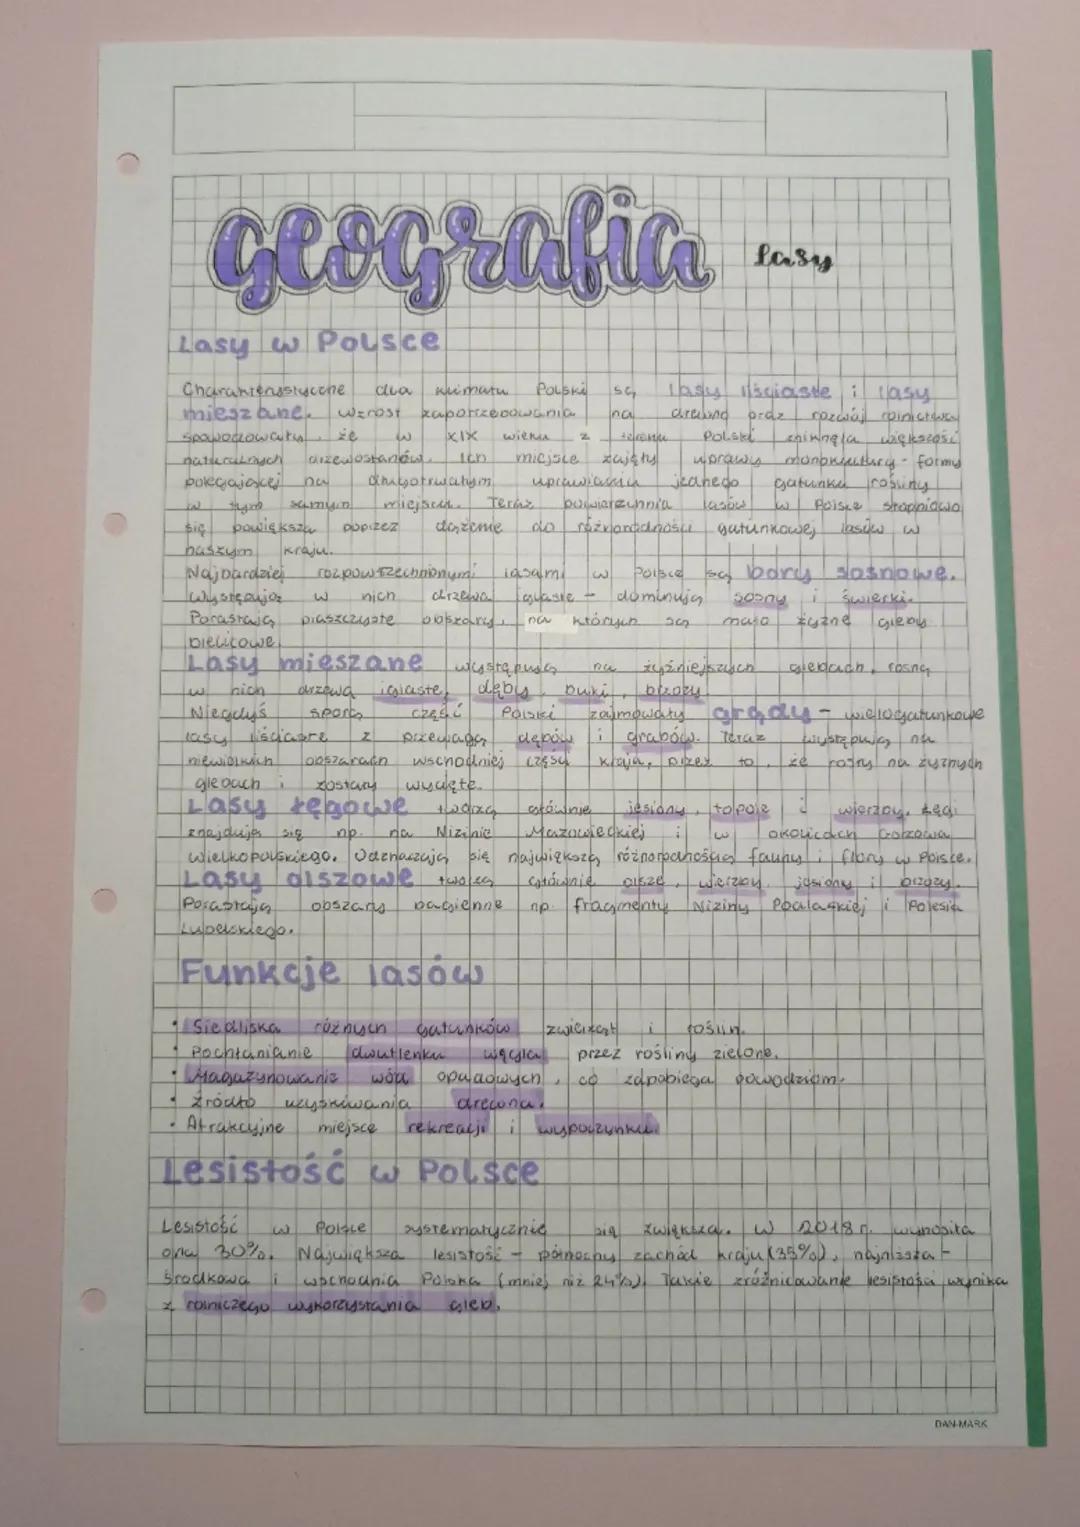 geografia lasy
Lasy w Polsce
Charakterystyczne dla klimatu Polski są lasy liściaste i lasy
mieszane. Wzrost zapotrzebowania na drewno oraz rozwój rolnictwa
spowodowały, że w XIX wieku z terenu Polski zniknęła większość
naturalnych drzewostanów. Ich miejsce zajęły uprawy monokultury - formy
polegającej na długotrwałym uprawianiu jednego gatunku rośliny
w tym samym miejscu. Teraz powierzchnia lasów w Polsce stopniowo
się powiększa poprzez dążenie do różnorodności gatunkowej lasów w
naszym kraju.
Najbardziej rozpowszechnionymi lasami w Polsce są bory sosnowe.
Występują w nich drzewa iglaste - dominują sosny i świerki.
Porastają piaszczyste obszary, na których są mało żyzne gleby
bielicowe.
Lasy mieszane występują na żyźniejszych glebach, rosną
w nich drzewa iglaste, dęby, buki, brzozy.
Niegdyś sporą część Polski zajmowały grądy - wielogatunkowe
lasy liściaste z przewagą dębów i grabów. Teraz występują na
niewielkich obszarach wschodniej części kraju, przez to, że rosły na żyznych
glebach i zostały wycięte.
Lasy łęgowe tworzą głównie jesiony, topole i wierzby. Łęgi
znajdują się np. na Nizinie Mazowieckiej i w okolicach Gorzowa
Wielkopolskiego. Odznaczają się największą różnorodnością fauny i flory w Polsce.
Lasy olszowe tworzą głównie olsze, wierzby, jesiony i brzozy.
Porastają obszary bagienne np. fragmenty Niziny Podlaskiej i Polesia
Lubelskiego.
Funkcje lasów
• Siedliska różnych gatunków zwierząt i roślin.
• Pochłanianie dwutlenku węgla przez rośliny zielone.
• Magazynowanie wód opadowych, co zapobiega powodziom.
• Źródło uzyskiwania drewna.
• Atrakcyjne miejsce rekreacji i wypoczynku.
Lesistość w Polsce
Lesistość w Polsce systematycznie się zwiększa. W 2018 r. wynosiła
ona 30%. Największa lesistość - północny zachód kraju (35%), najniższa -
środkowa i wschodnia Polska (mniej niż 24%). Takie zróżnicowanie lesistości wynika
z rolniczego wykorzystania gleb.
DAN-MARK